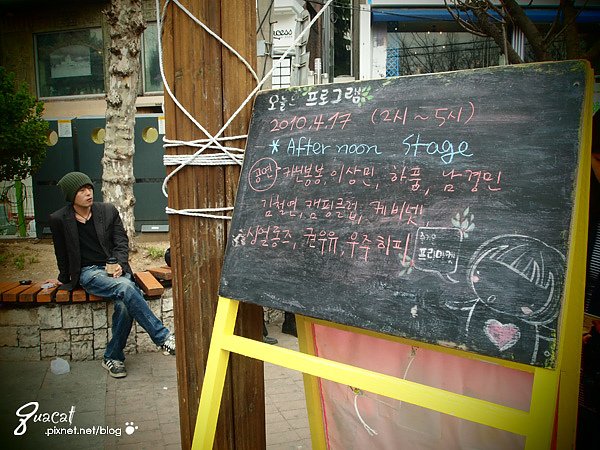 오늘의 프로그램
2010.4.17 (2시~5시)
* After noon Stage
공연 캐빈봉봉, 이상민, 하품, 남경민
김철연, 캠핑클럽, 캐비넷
군우유, 우주히피
즐거운
프리마켓
guacat
.pixnet.net/blog